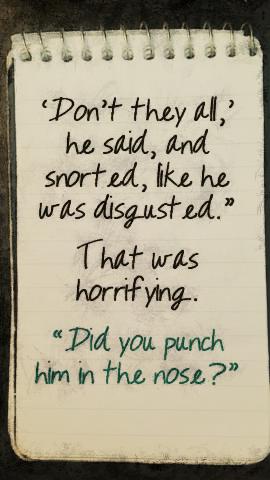 ‘Don’t they all,’
he said, and
snorted, like he
was disgusted.”
That was
horrifying.
“Did you punch
him in the nose?”